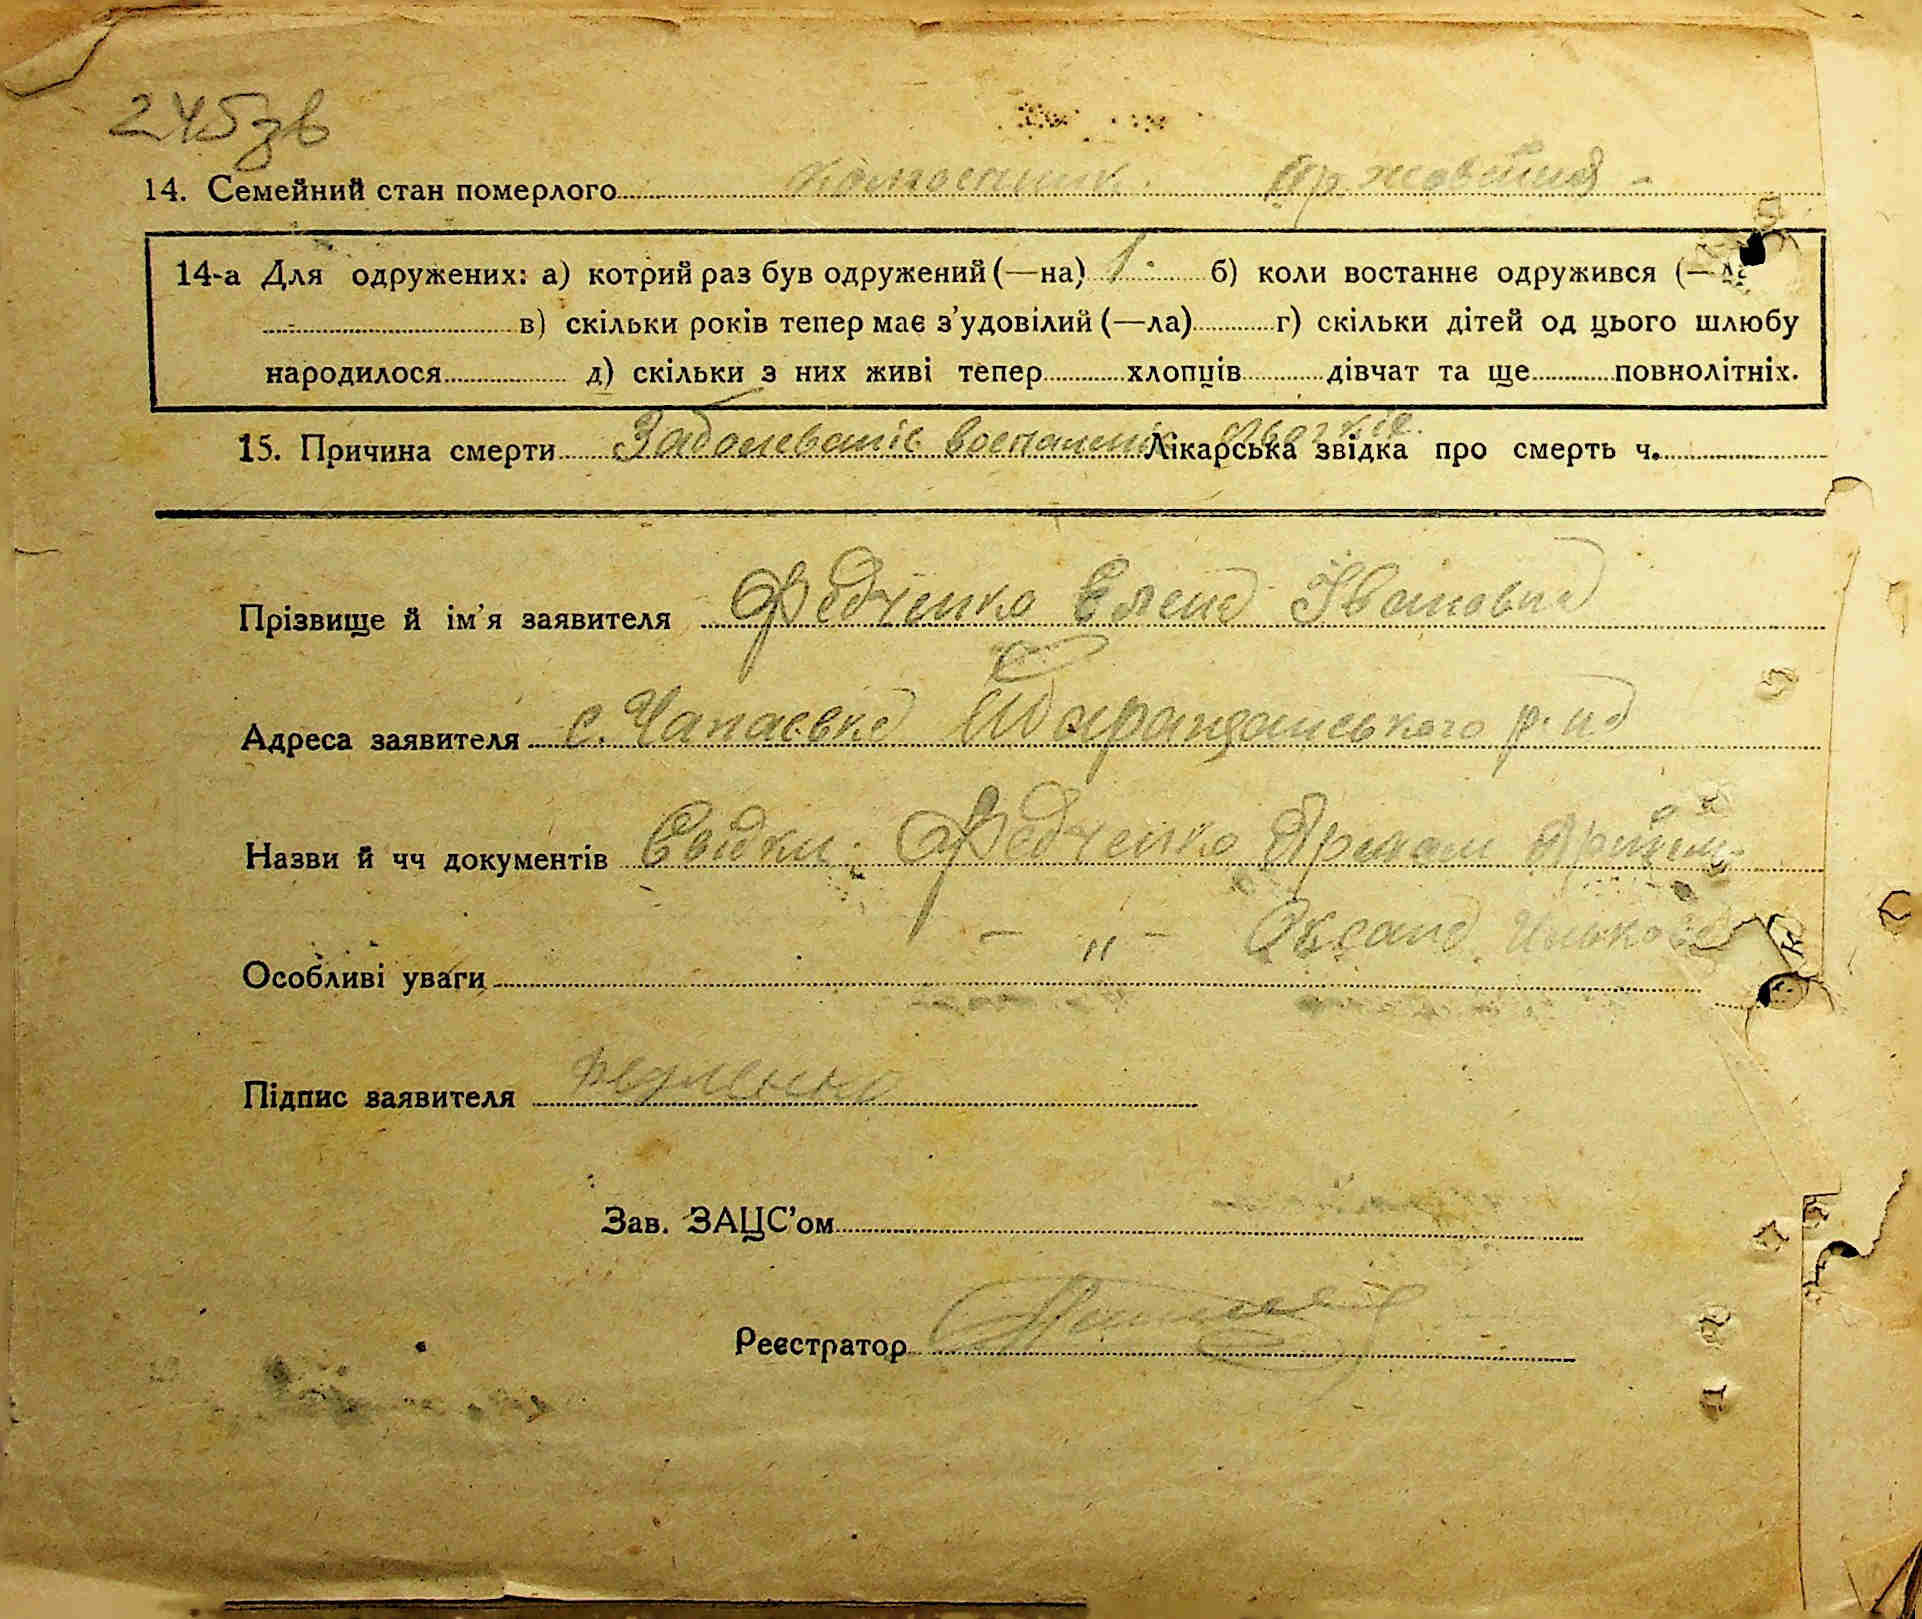 245зв
14. Семейний стан померлого колгоспник.
14-а Для одружених: а) котрий раз був одружений (—на) 1. б) коли востаннє одружився (—ла
в) скільки років тепер має з'удовілий (—ла) г) скільки дітей од цього шлюбу
народилося д) скільки з них живі тепер хлопців дівчат та ще повнолітніх.
15. Причина смерти Заболеваніе воспаленіе Лікарська звідка про смерть ч.
Прізвище й ім'я заявителя Федченко Елена Івановна
Адреса заявителя с. Чапаевка р-на
Назви й чч документів Свідки: Федченко
— „ — Оксана
Особливі уваги
Підпис заявителя
Зав. ЗАЦС'ом
Реєстратор